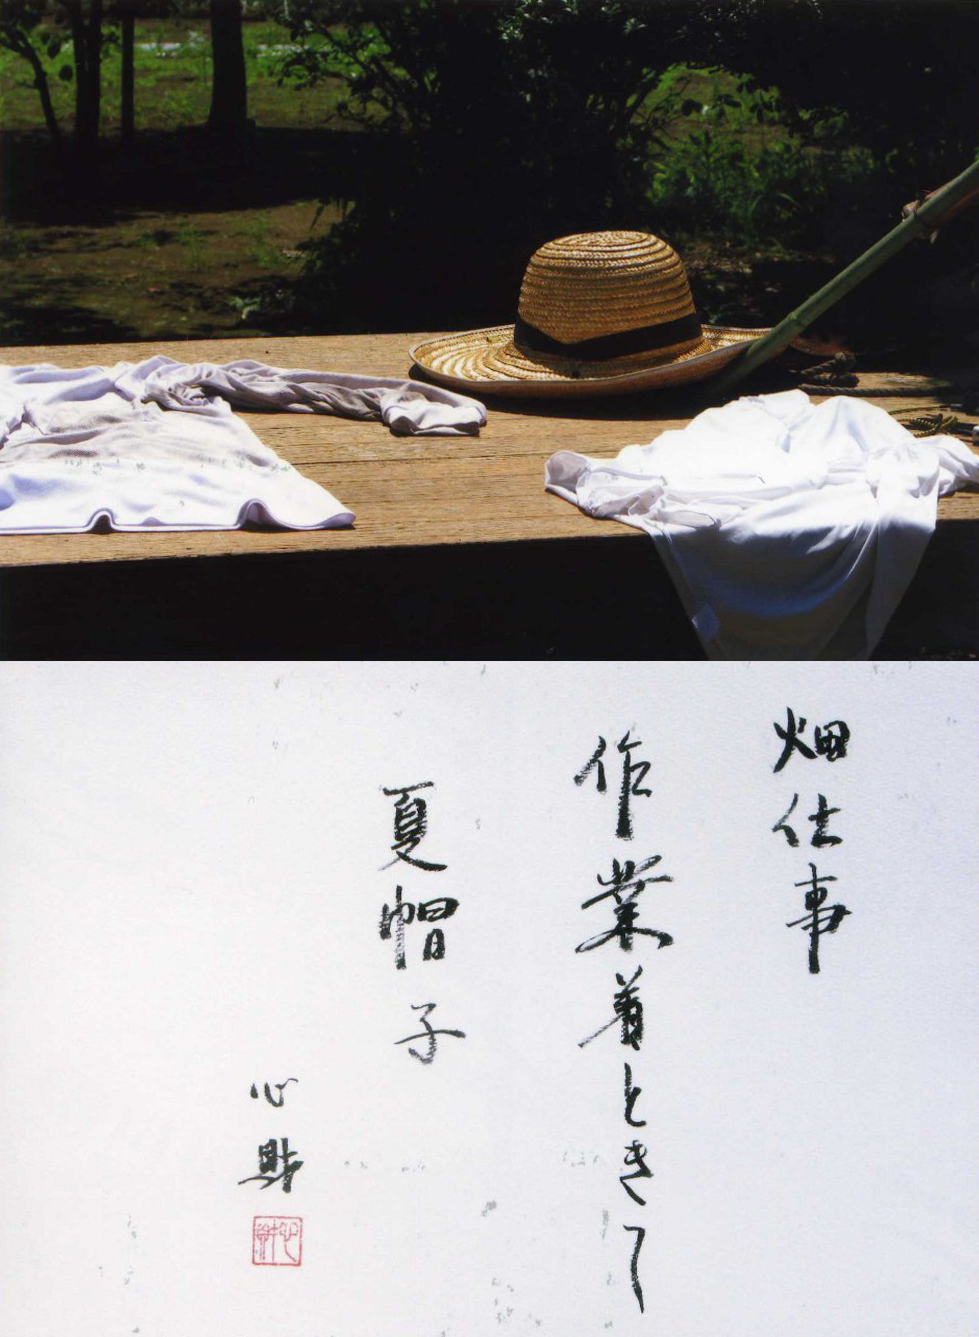 畑仕事
作業着ときて
夏帽子
心財